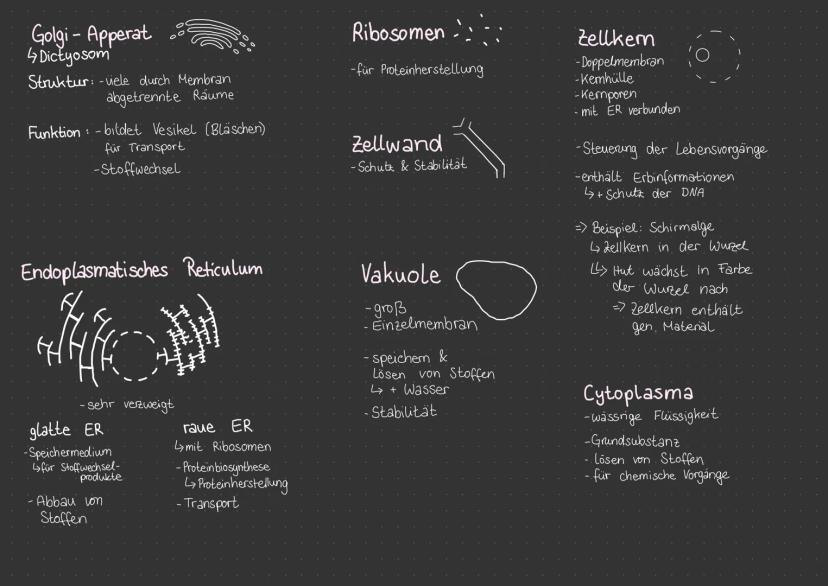 Golgi - Apperat
↳ Dictyosom
Struktur: - viele durch Membran
abgetrennte Räume
Funktion: - bildet Vesikel (Bläschen)
für Transport
- Stoffwechsel
Endoplasmatisches Reticulum
- sehr verzweigt
glatte ER
- Speichermedium
↳ für Stoffwechsel-
produkte
- Abbau von
Stoffen
raue ER
↳ mit Ribosomen
- Proteinbiosynthese
↳ Proteinherstellung
- Transport
Ribosomen
- für Proteinherstellung
Zellwand
- Schutz & Stabilität
Vakuole
- groß
- Einzelmembran
- speichern &
lösen von Stoffen
↳ + Wasser
- Stabilität
Zellkern
- Doppelmembran
- Kernhülle
- Kernporen
- mit ER verbunden
- Steuerung der Lebensvorgänge
- enthält Erbinformationen
↳ + Schutz der DNA
=> Beispiel: Schirmalge
↳ Zellkern in der Wurzel
↳ Hut wächst in Farbe
der Wurzel nach
=> Zellkern enthält
gen. Material
Cytoplasma
- wässrige Flüssigkeit
- Grundsubstanz
- lösen von Stoffen
- für chemische Vorgänge